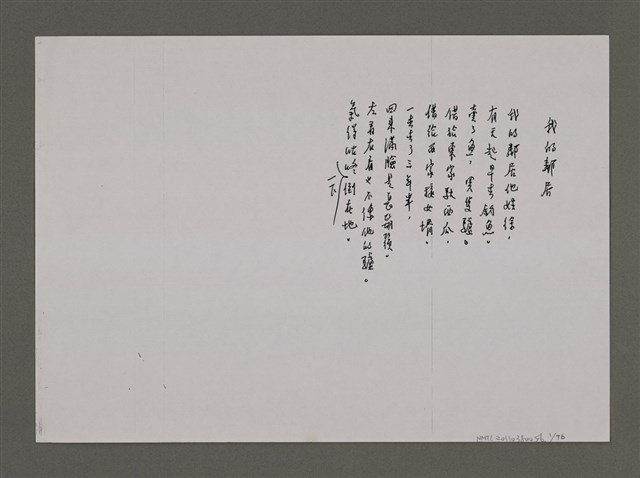 我的鄰居
我的鄰居他姓徐，
有天起早去釣魚。
賣了魚，買隻驢。
借給東家馱西瓜，
借給西家接女壻。
一去去了三年半，
回來滿臉是長鬍鬚。
左看右看也不像他的驢。
氣得咕咚一下倒在地。